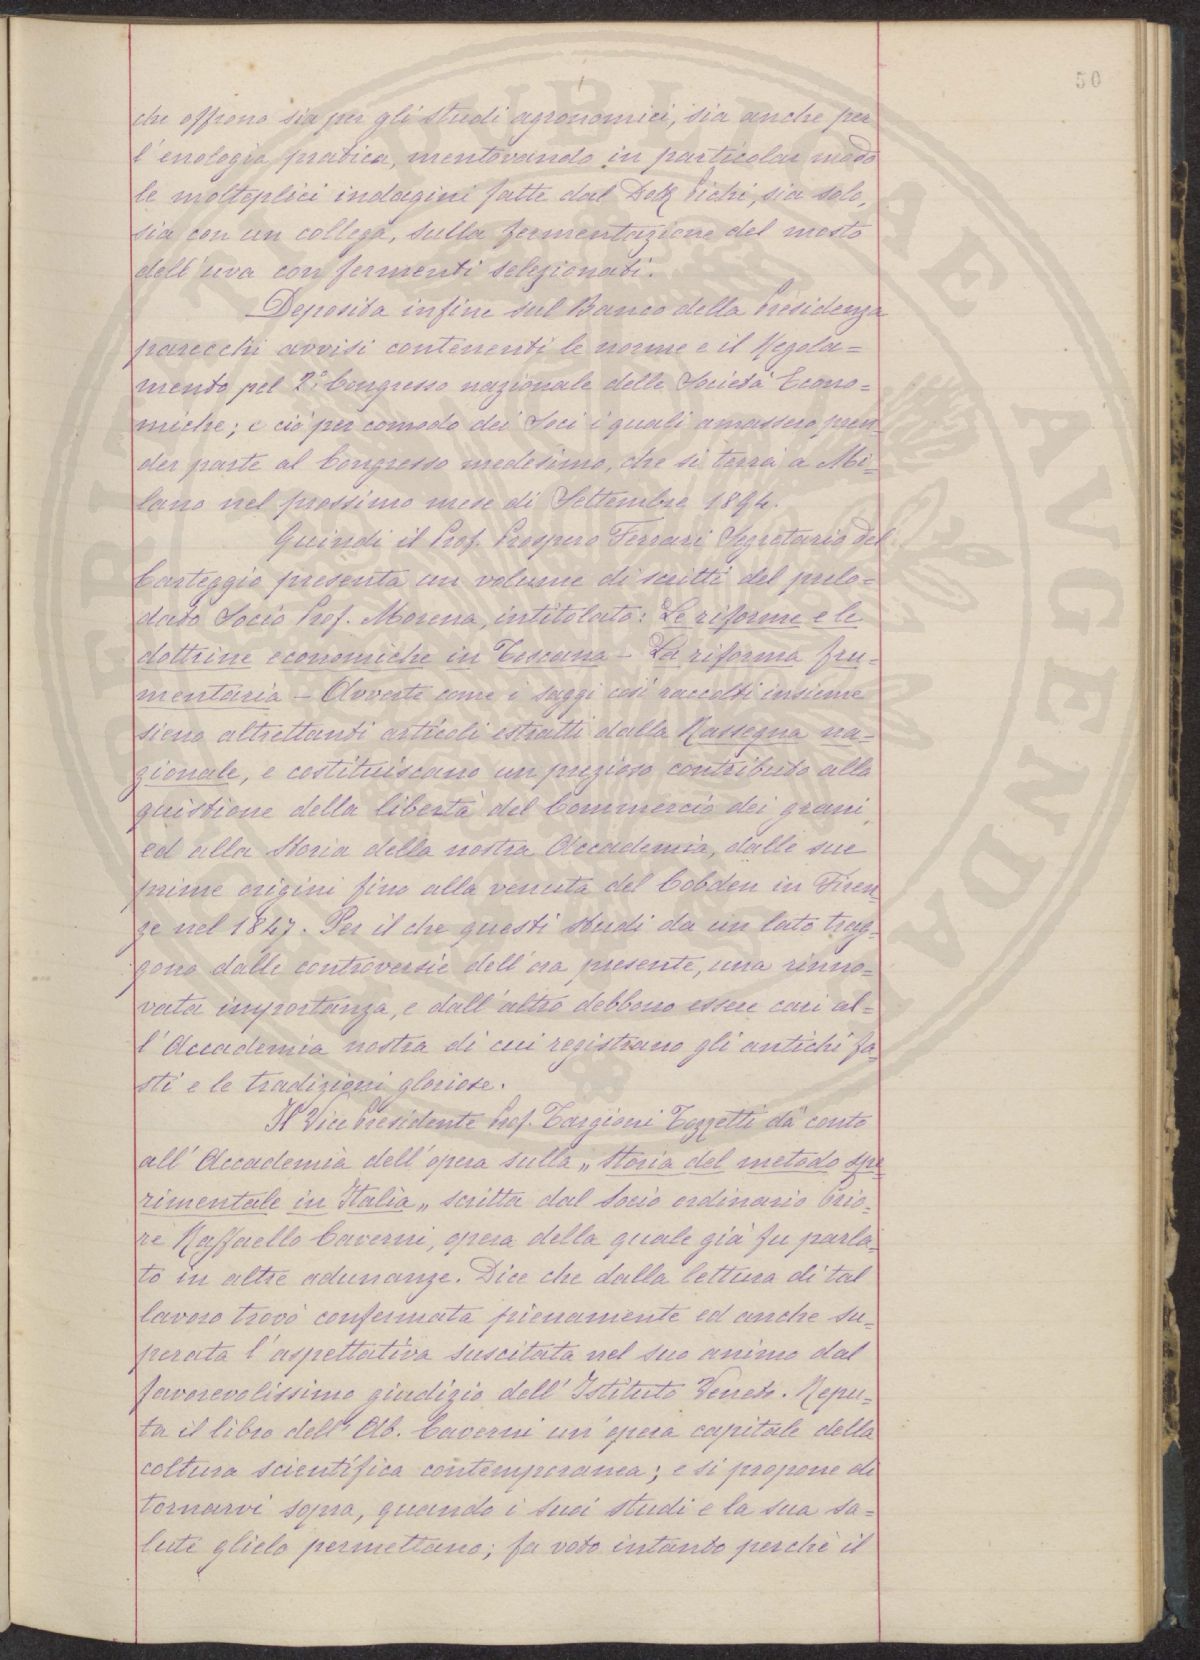 50
che offrono sia per gli studi agronomici, sia anche per
l'enologia pratica, mentovando in particolar modo
le molteplici indagini fatte dal Dott Pichi, sia solo,
sia con un collega, sulla fermentazione del mosto
dell'uva con fermenti selezionati.
Deposita infine sul Banco della Presidenza
parecchi avvisi contenenti le norme e il Regola=
mento pel 2° Congresso nazionale delle Società Econo=
miche; e ciò per comodo dei Soci i quali amassero pren=
der parte al Congresso medesimo, che si terrà a Mi=
lano nel prossimo mese di Settembre 1894.
Quindi il Prof. Prospero Ferrari Segretario del
Carteggio presenta un volume di scritti del prelo=
dato Socio Prof. Morena, intitolato: Le riforme e le
dottrine economiche in Toscana – La riforma fru=
mentaria – Avverte come i saggi così raccolti insieme
sieno altrettanti articoli estratti dalla Rassegna na=
zionale, e costituiscano un prezioso contributo alla
quistione della libertà del Commercio dei grani,
ed alla Storia della nostra Accademia, dalle sue
prime origini fino alla venuta del Cobden in Firen=
ze nel 1847. Per il che questi studi da un lato trag=
gono dalle controversie dell'ora presente, una rinno=
vata importanza, e dall'altro debbono essere cari al=
l'Accademia nostra di cui registrano gli antichi fa=
sti e le tradizioni gloriose.
Il Vice Presidente Prof. Targioni Tozzetti dà conto
all'Accademia dell'opera sulla „Storia del metodo spe=
rimentale in Italia„ scritta dal Socio ordinario Prio=
re Raffaello Caverni, opera della quale già fu parla=
to in altre adunanze. Dice che dalla lettura di tal
lavoro trovò confermata pienamente ed anche su=
perata l'aspettativa suscitata nel suo animo dal
favorevolissimo giudizio dell'Istituto Veneto. Repu=
ta il libro dell'Ab. Caverni un'opera capitale della
coltura scientifica contemporanea; e si propone di
tornarvi sopra, quando i suoi studi e la sua sa=
lute glielo permettano; fa voto intanto perchè il